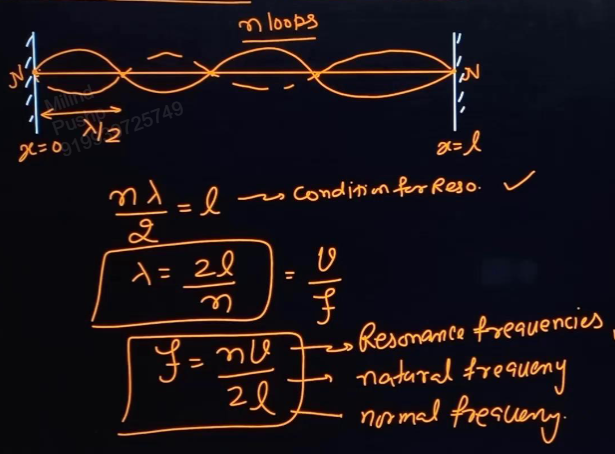 n loops
N N
λ/2
x=0 x=l
nλ/2 = l → Condition for Reso. ✓
λ = 2l/n = v/f
f = nv/2l → Resonance frequencies
→ natural frequeny
normal frequeny.